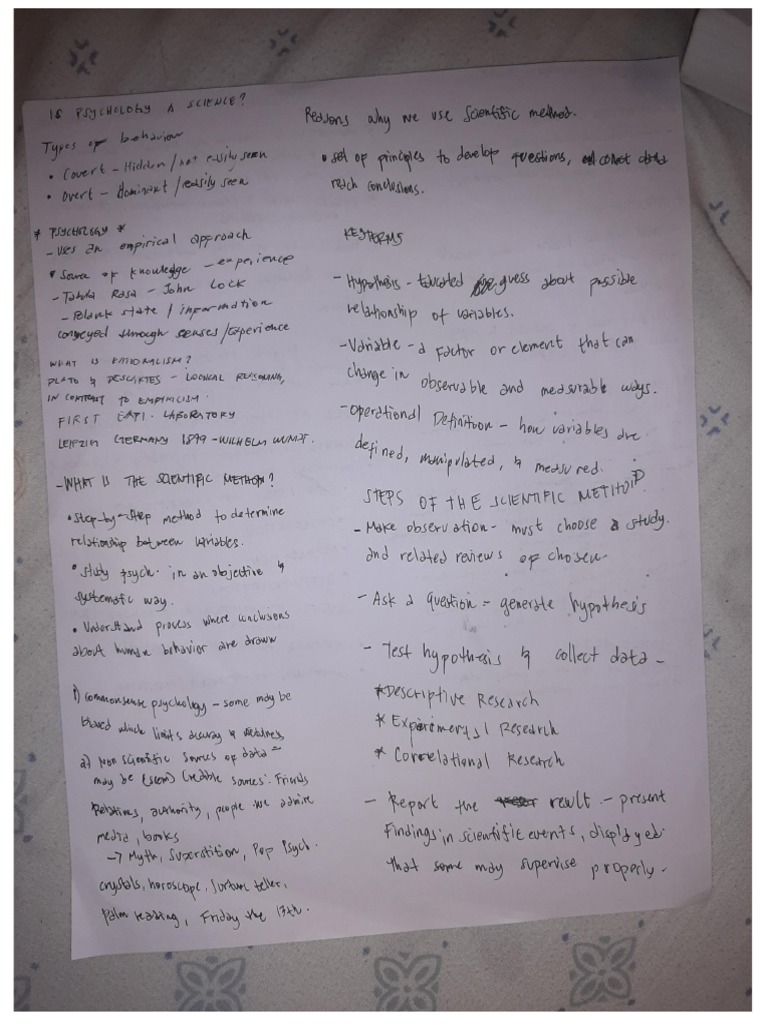 IS PSYCHOLOGY A SCIENCE?
Types of behaviour
• Covert - Hidden / not easily seen
• Overt - Dominant / easily seen
* PSYCHOLOGY *
- Uses an empirical approach
• Source of knowledge - experience
- Tabula Rasa - John Lock
- Blank state / information
conveyed through senses/Experience
WHAT IS RATIONALISM?
PLATO & DESCARTES - LOGICAL REASONING,
IN CONTRAST TO EMPIRICISM.
FIRST LABORATORY
LEIPZIG GERMANY 1879 - WILHELM WUNDT.
- WHAT IS THE SCIENTIFIC METHOD?
• Step-by-step method to determine
relationship between variables.
• Study psych. in an objective &
systematic way.
• Understand process where conclusions
about human behavior are drawn
1) commonsense psychology - some may be
biased which limits accuracy &
2) Non scientific sources of data -
may be (seem) credible sources: Friends
Relatives, authority, people we admire
media, books
-> Myth, Superstition, Pop Psych.
crystals, horoscope, fortune teller,
Palm reading, Friday the 13th.
Reasons why we use Scientific method.
• set of principles to develop questions, collect data
reach conclusions.
KEYTERMS
- Hypothesis - Educated guess about possible
relationship of variables.
- Variable - a factor or element that can
change in observable and measurable ways.
- Operational Definition - how variables are
defined, manipulated, & measured.
STEPS OF THE SCIENTIFIC METHOD
- Make observation - must choose a study.
and related reviews of chosen.
- Ask a question = generate hypothesis
- Test hypothesis & collect data -
* Descriptive Research
* Experimental Research
* Correlational Research
- Report the result - present
Findings in scientific events, displayed
that some may supervise properly.